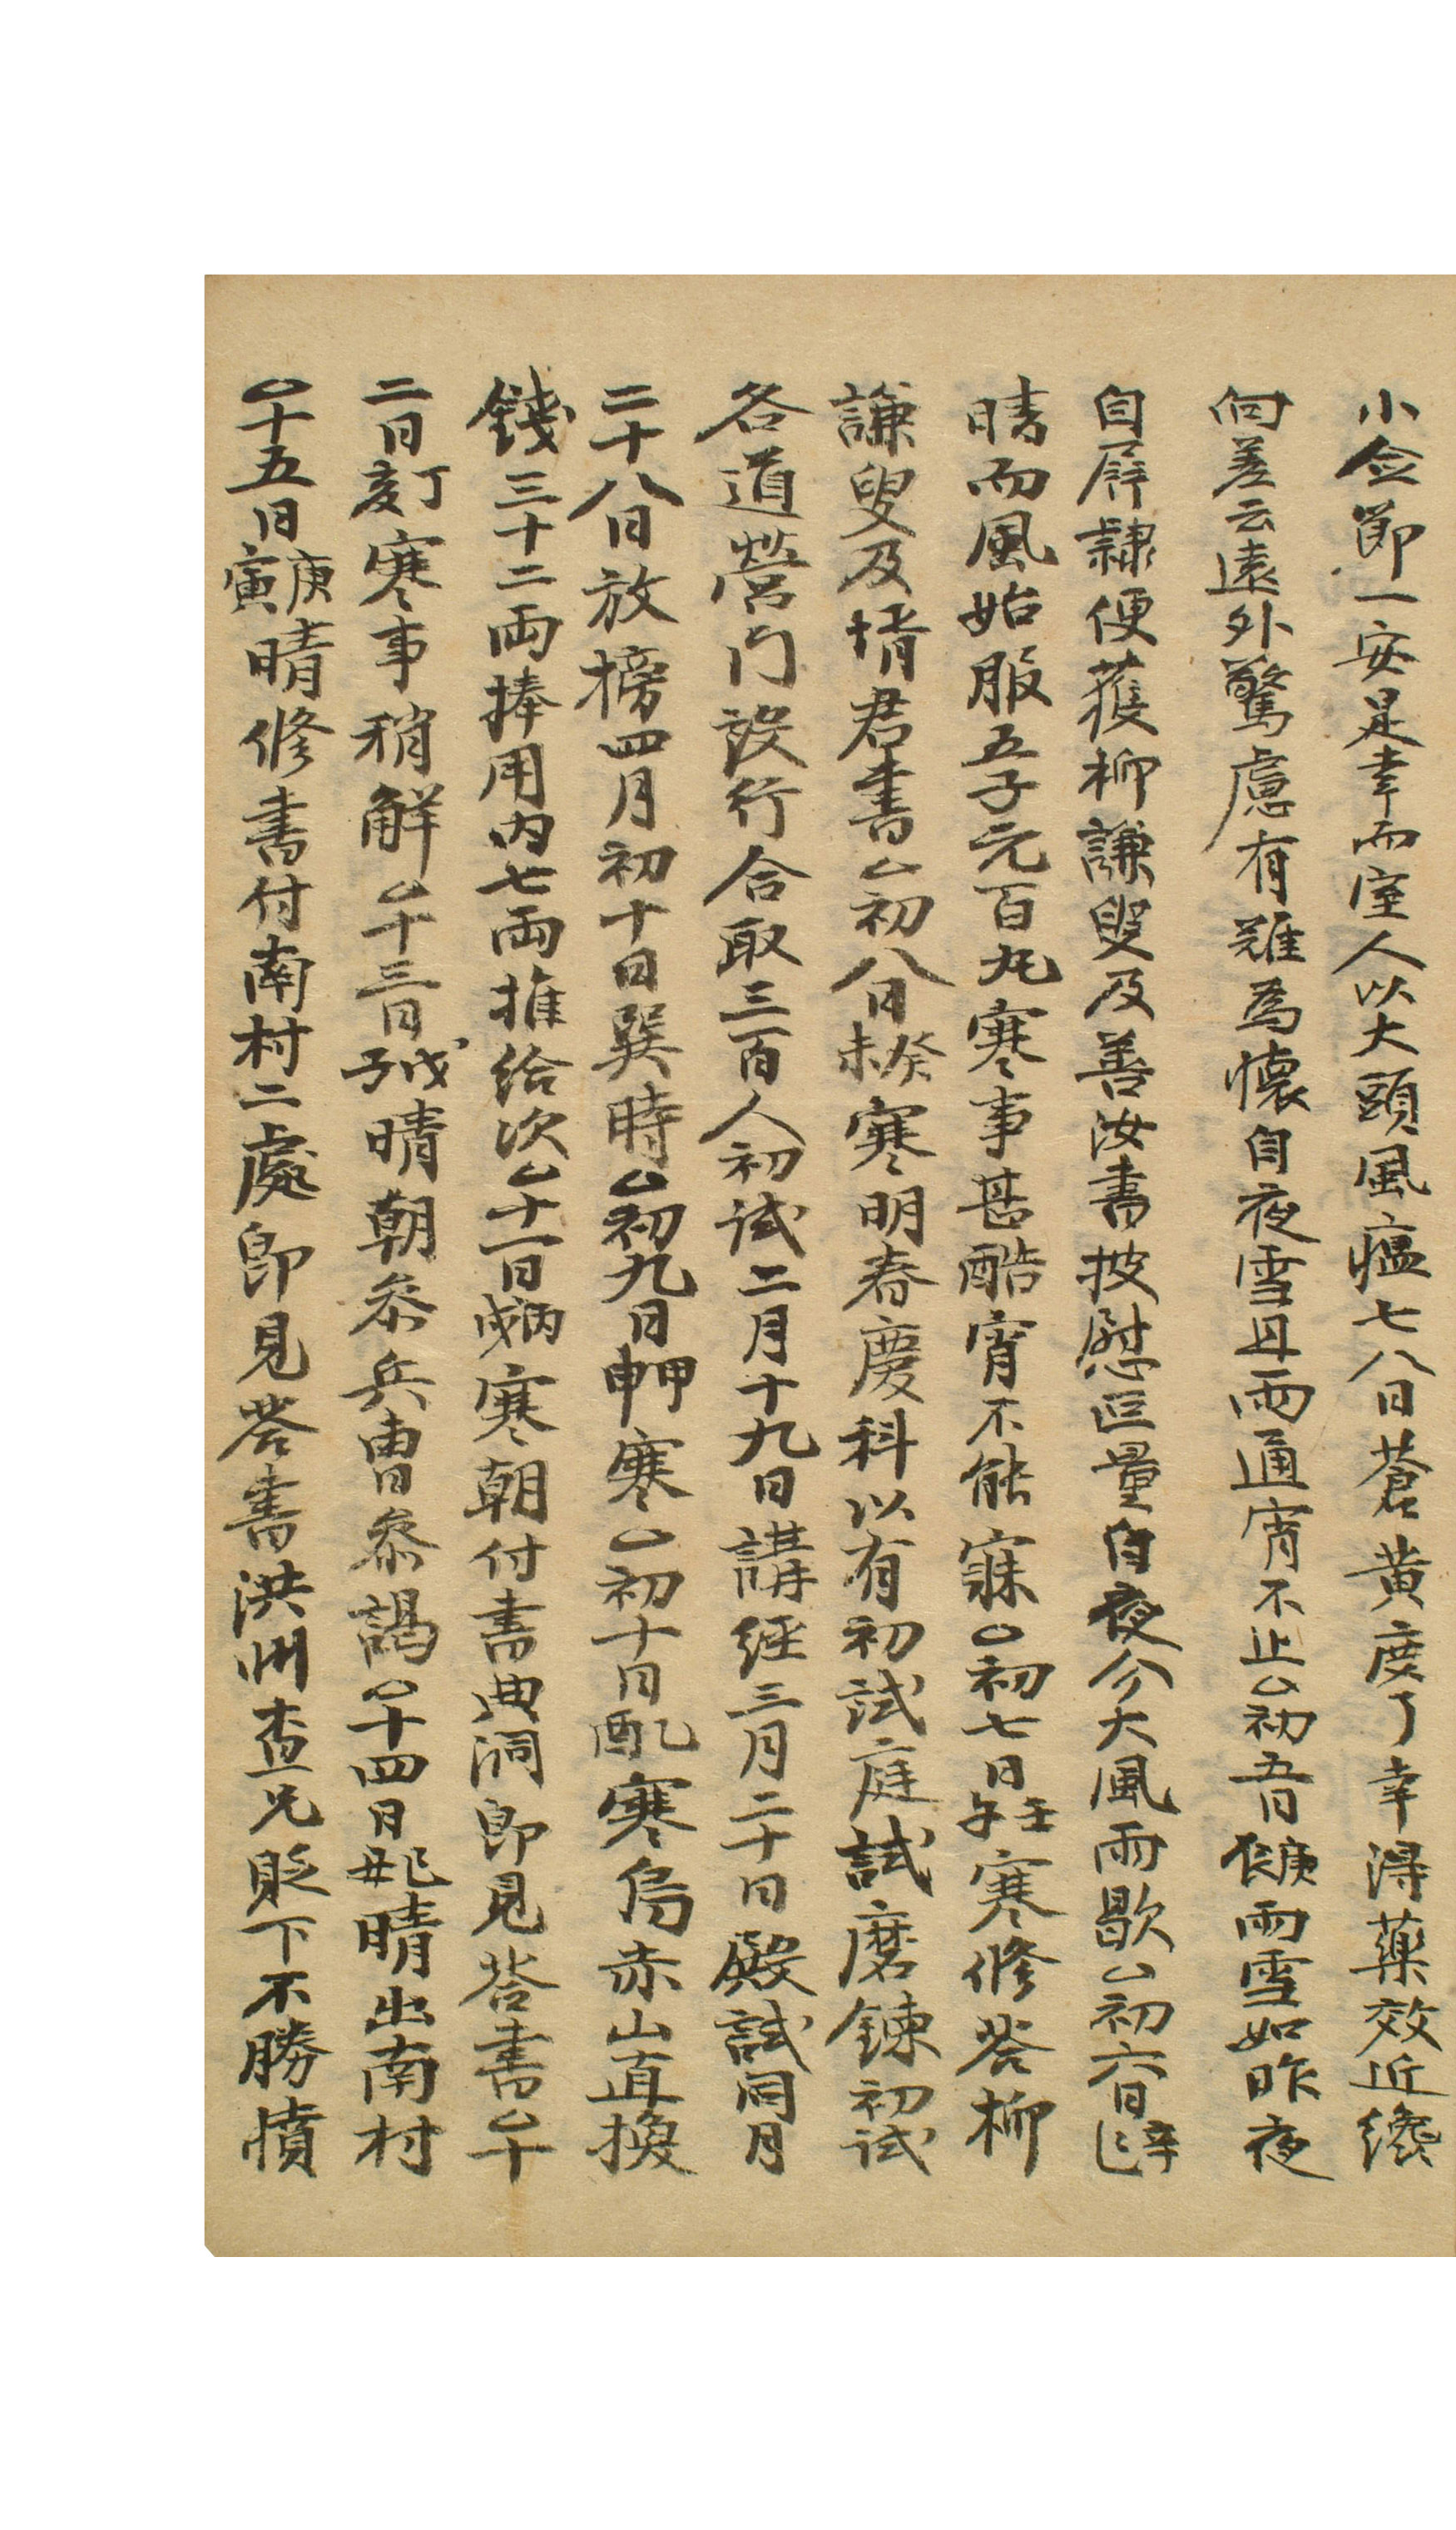 小仚節一安是幸而室人以大頭風瘟七八日蒼黃度了幸得藥效近纔
向差云遠外驚慮有難爲懷自夜雪且雨通宵不止○初五日庚辰雨雪如昨夜
自屛隷便獲柳謙叟及善汝書披慰叵量自夜今大風雨歇○初六日辛巳
晴而風始服五子元百丸寒事甚酷宵不能寐○初七日壬午寒修答柳
謙叟及壻君書○初八日癸未寒明春慶科以有初試庭試磨鍊初試
各道營門設行合取三百人初試二月十九日講經三月二十日殿試同月
二十八日放榜四月初十日巽時○初九日甲申寒○初十日乙酉寒烏赤山直換
錢三十二兩捧用內七兩推給次○十一日丙戌寒朝付書典洞卽見答書○十
二日丁亥寒事稍解○十三日戊子晴朝叅兵曹叅謁○十四日己丑晴出南村
○十五日庚寅晴修書付南村二處卽見答書洪州査兄貶下不勝憤